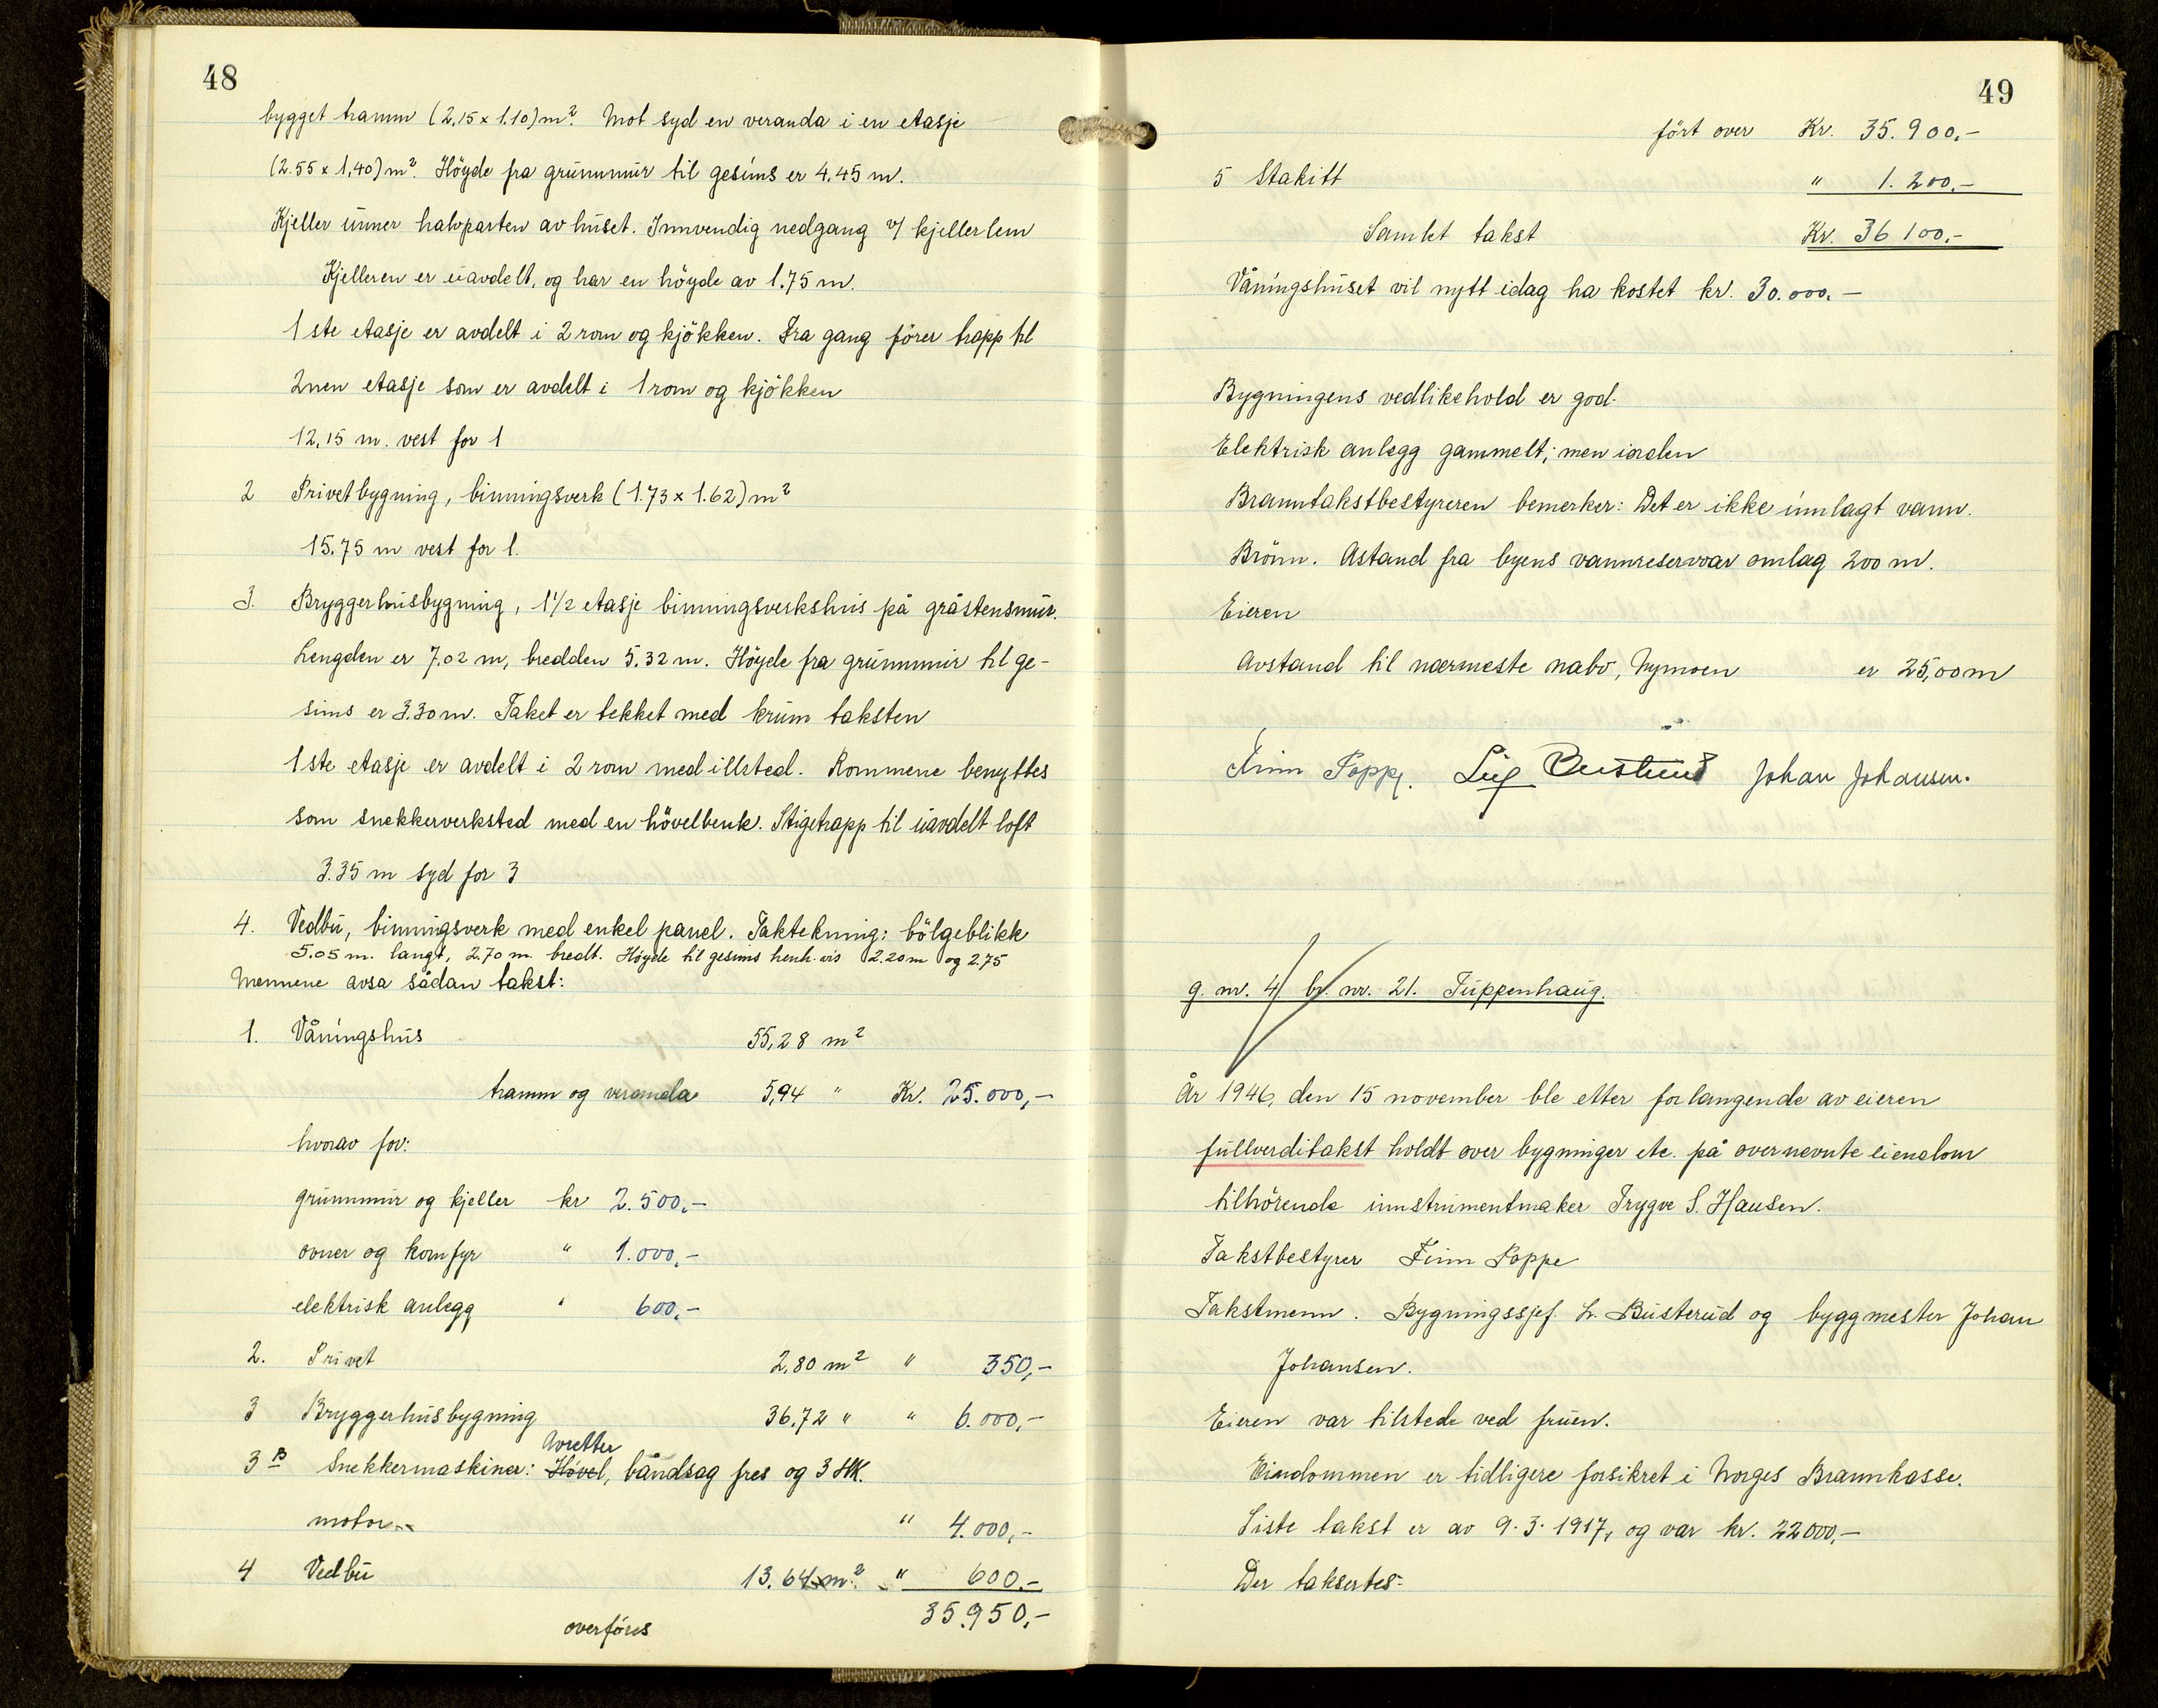 48
bygget tramm (2,15 x 1.10) m². Mot syd en veranda i en etasje
(2.55 x 1,40) m². Höyde fra grunnmur til gesims er 4,45 m.
Kjeller unner halvparten av huset. Innvendig nedgang v/ kjellerlem
Kjelleren er uavdelt, og har en höyde av 1.75 m.
1ste etasje er avdelt i 2 rom og kjökken. Fra gang förer trapp til
2nen etasje som er avdelt i 1 rom og kjökken
12,15 m. vest for 1
2 Privetbygning, binningsverk (1.73 x 1.62) m²
15.75 m vest for 1.
3. Bryggerhusbygning, 1½ etasje binningsverkshus på gråstensmur.
Lengden er 7.02 m, bredden 5.32 m. Höyde fra grunnmur til ge-
sims er 3.30 m. Taket er tekket med krum taksten
1ste etasje er avdelt i 2 rom med illsted. Rommene benyttes
som snekkerverksted med en hövelbenk. Stigetrapp til uavdelt loft
3.35 m syd for 3
4. Vedbu, binningsverk med enkel panel. Taktekning: bölgeblikk
5.05 m. langt, 2.70 m. bredt. Höyde til gesims henh.vis 2.20 m og 2.75
Mennene avsa sådan takst:
1. Våningshus 55,28 m²
tramm og veranda 5,94 " Kr. 25.000,-
hvorav for:
grunnmur og kjeller kr 2.500,-
ovner og komfyr " 1.000,-
elektrisk anlegg " 600,-
2. Privet 2,80 m² " 350,-
3 Bryggerhusbygning 36,72 " " 6.000,-
Avretter
3 B Snekkermaskiner: Hövel, båndsag fres og 3 HK.
motor " 4.000,-
4 Vedbu 13.64 m² " 600.-
overföres 35.950,-
49
fört over Kr. 35.900,-
5 Stakitt " 1.200,-
Samlet takst Kr. 36 100,-
Våningshuset vil nytt idag ha kostet kr. 30.000.-
Bygningens vedlikehold er god.
Elektrisk anlegg gammelt; men iorden
Branntakstbestyreren bemerker: Det er ikke innlagt vann.
Brönn. Astand fra byens vannreservoar omlag 200 m.
Eieren
Avstand til nærmeste nabo, Nymoen er 25,00 m
Finn Poppe. Busterud Johan Johansen.
g. nr. 4 br. nr. 21. Tuppenhaug.
År 1946, den 15 november ble etter forlangende av eieren
fullverditakst holdt over bygninger etc. på overnevnte eiendom
tilhörende innstrumentmaker Trygve S. Hansen.
Takstbestyrer Finn Poppe
Takstmenn. Bygningssjef. L. Busterud og byggmester Johan
Johansen.
Eieren var tilstede ved fruen.
Eindommen er tidligere forsikret i Norges Brannkasse.
Siste takst er av 9.3.1917, og var kr. 22000,-
Der taksertes: